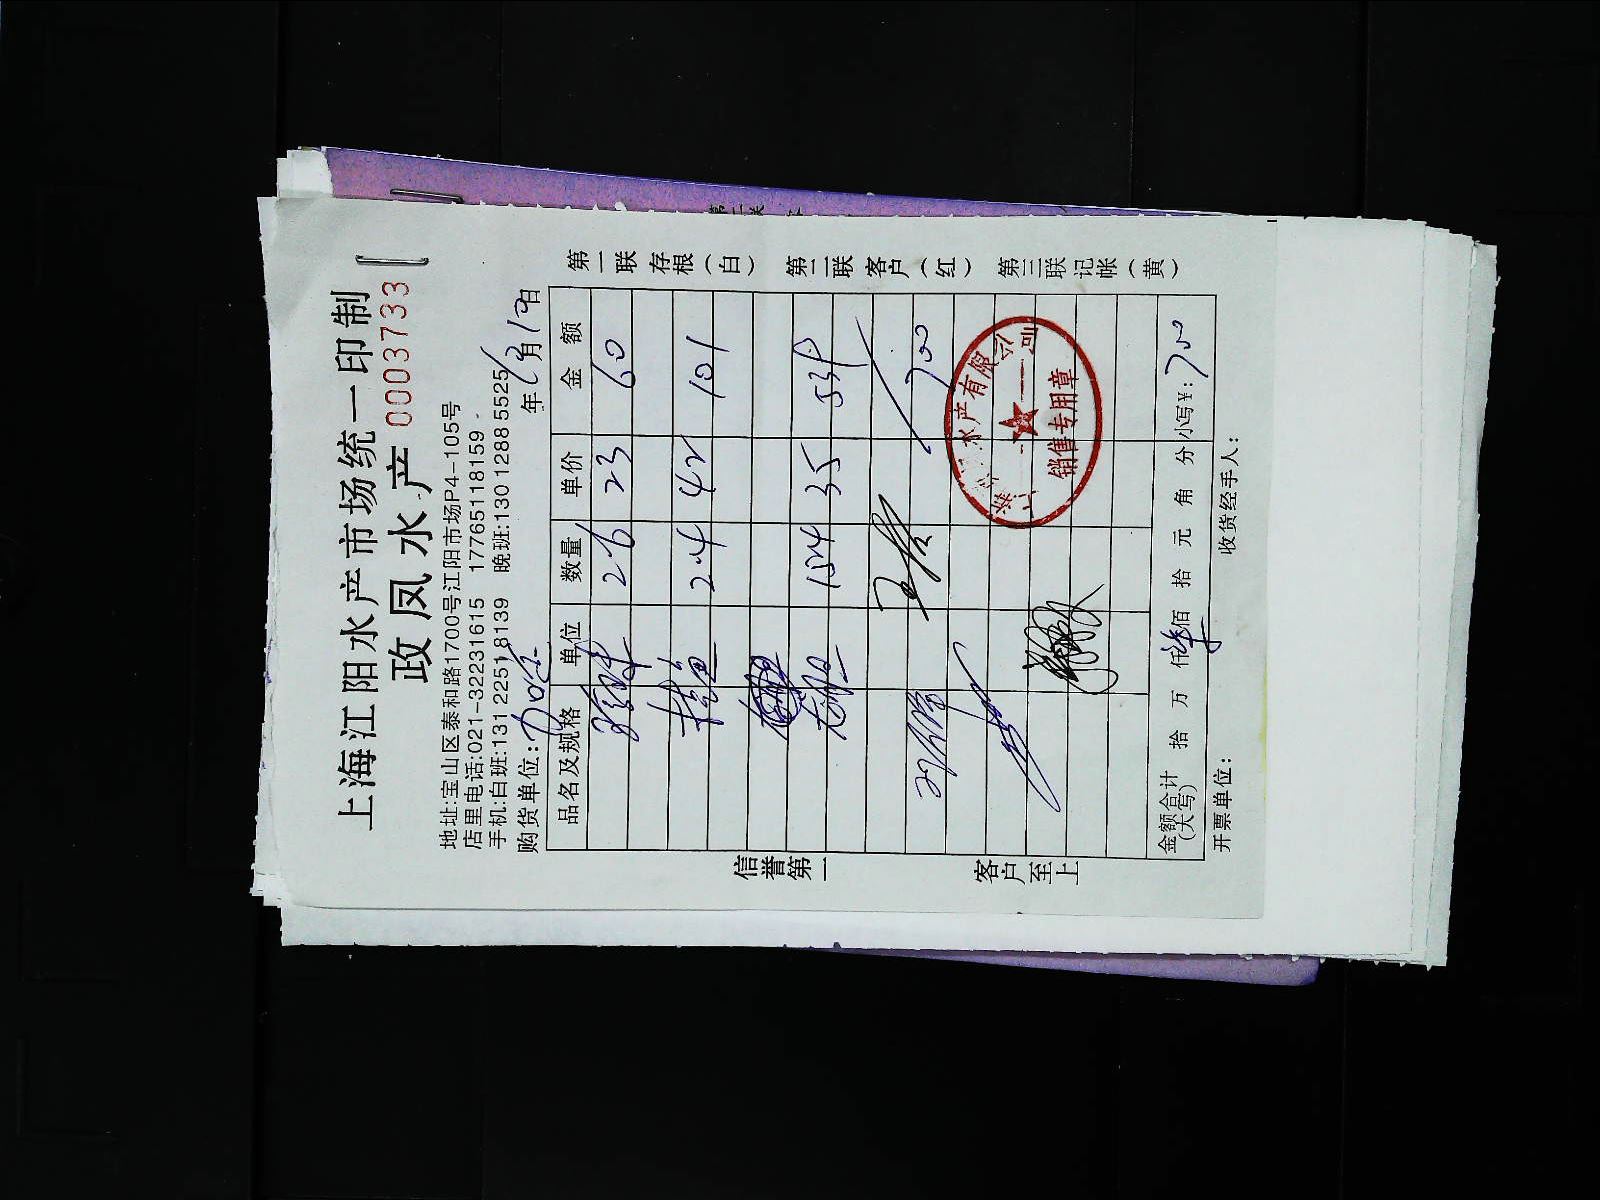 上海江阳水产市场统一印制
政凤水产 0003733
地址:宝山区泰和路1700号江阳市场P4-105号
店里电话:021-32231615 17765118159
手机:白班:131 2251 8139 晚班:130 1288 5525
购货单位: 年12月10日
品名及规格 单位 数量 单价 金额
2.6 23 60
2.4 42 101
15.4 35 539
700
金额合计(大写) 拾 万 仟 佰 拾 元 角 分 小写¥: 700
开票单位: 收货经手人:
信誉第一 客户至上
第一联 存根(白) 第二联 客户(红) 第三联 记帐(黄)
水产有限公司
销售专用章